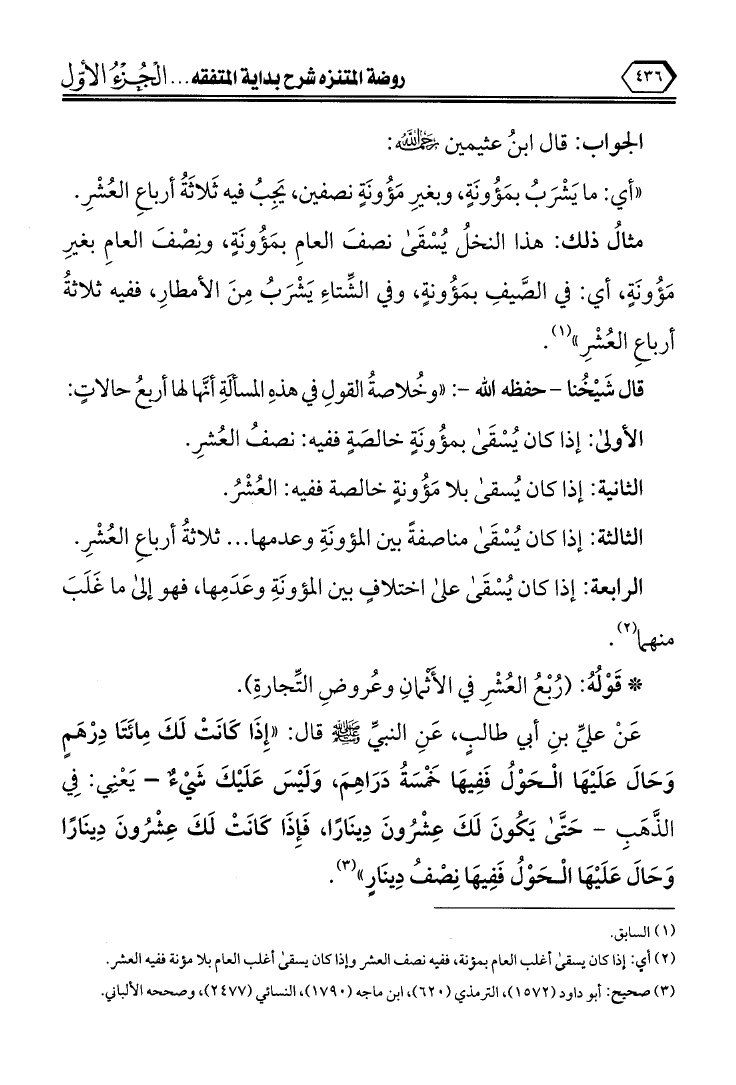 ٤٣٦ روضة المتنزه شرح بداية المتفقه... الْجُزءُ الأَوَّل
الجواب: قال ابنُ عثيمين رَحِمَهُ اللَّهُ:
«أي: ما يَشْرَبُ بمَؤُونَةٍ، وبغيرِ مَؤُونَةٍ نصفين، يَجِبُ فيه ثَلاثَةُ أرباعِ العُشْرِ.
مثالُ ذلك: هذا النخلُ يُسْقَىٰ نصفَ العامِ بمَؤُونَةٍ، ونِصْفَ العامِ بغيرِ
مَؤُونَةٍ، أي: في الصَّيفِ بمَؤُونةٍ، وفي الشِّتاءِ يَشْرَبُ مِنَ الأمطارِ، ففيه ثلاثةُ
أرباعِ العُشْرِ»(١).
قال شَيْخُنا – حفظه الله –: «وخُلاصةُ القولِ في هذهِ المسألَةِ أنَّها لها أربعُ حالاتٍ:
الأولىٰ: إذا كان يُسْقَىٰ بمؤُونَةٍ خالصَةٍ ففيه: نصفُ العُشرِ.
الثانية: إذا كان يُسقىٰ بلا مَؤُونةٍ خالصة ففيه: العُشْرُ.
الثالثة: إذا كان يُسْقَىٰ مناصفةً بين المؤونَةِ وعدمها... ثلاثةُ أرباعِ العُشْرِ.
الرابعة: إذا كان يُسْقَىٰ علىٰ اختلافٍ بين المؤونَةِ وعَدَمِها، فهو إلىٰ ما غَلَبَ
منهما(٢).
* قَوْلُهُ: (رُبْعُ العُشْرِ في الأَثْمانِ وعُروضِ التِّجارةِ).
عَنْ عليِّ بنِ أبي طالبٍ، عَنِ النبيِّ ﷺ قال: «إِذَا كَانَتْ لَكَ مِائَتَا دِرْهَمٍ
وَحَالَ عَلَيْهَا الْحَوْلُ فَفِيهَا خَمْسَةُ دَرَاهِمَ، وَلَيْسَ عَلَيْكَ شَيْءٌ – يَعْنِي: فِي
الذَّهَبِ – حَتَّىٰ يَكُونَ لَكَ عِشْرُونَ دِينَارًا، فَإِذَا كَانَتْ لَكَ عِشْرُونَ دِينَارًا
وَحَالَ عَلَيْهَا الْحَوْلُ فَفِيهَا نِصْفُ دِينَارٍ»(٣).
(١) السابق.
(٢) أي: إذا كان يسقىٰ أغلب العام بمؤنة، ففيه نصف العشر وإذا كان يسقىٰ أغلب العام بلا مؤنة ففيه العشر.
(٣) صحيح: أبو داود (١٥٧٢)، الترمذي (٦٢٠)، ابن ماجه (١٧٩٠)، النسائي (٢٤٧٧)، وصححه الألباني.